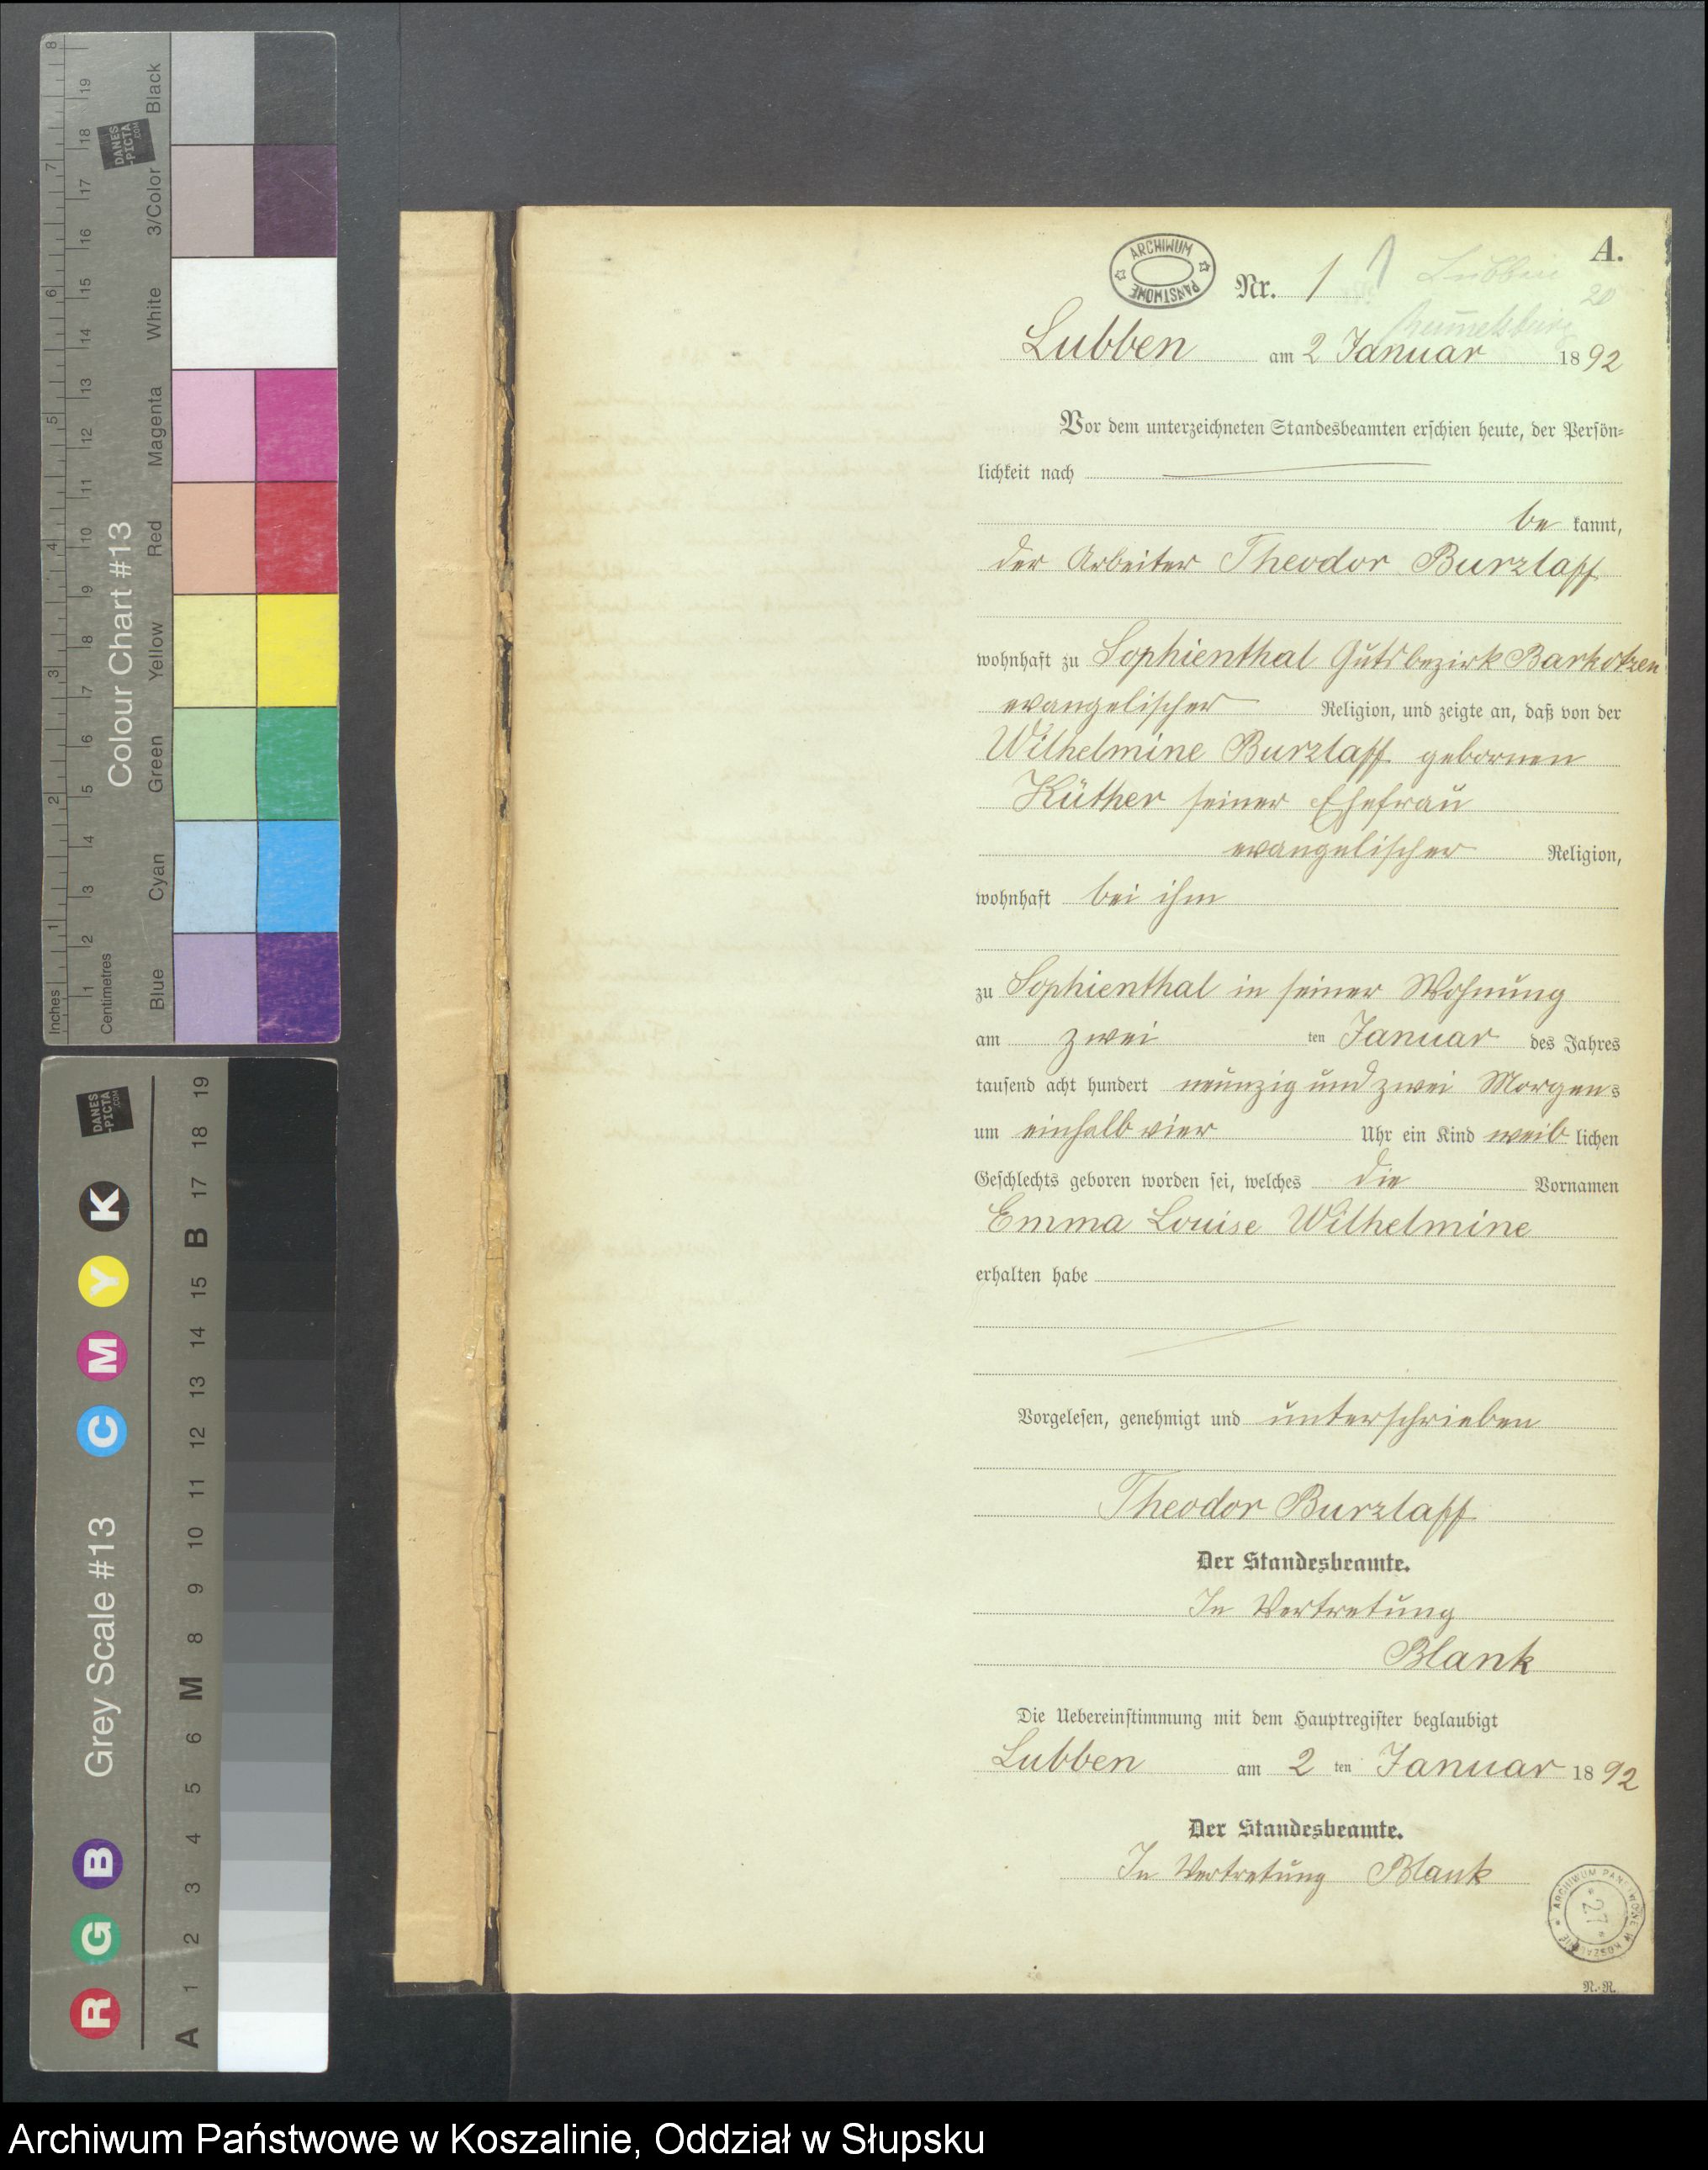 A.
ARCHIWUM PAŃSTWOWE
Nr. 1 1 Lubben
20
Rummelsburg
Lubben am 2 Januar 1892
Vor dem unterzeichneten Standesbeamten erschien heute, der Persön-
lichkeit nach
be kannt,
der Arbeiter Theodor Burzlaff
wohnhaft zu Sophienthal Gutsbezirk Barkotzen
evangelischer Religion, und zeigte an, daß von der
Wilhelmine Burzlaff gebornen
Küther seiner Ehefrau
evangelischer Religion,
wohnhaft bei ihm
zu Sophienthal in seiner Wohnung
am zwei ten Januar des Jahres
tausend acht hundert neunzig und zwei Morgens
um einhalb vier Uhr ein Kind weib lichen
Geschlechts geboren worden sei, welches die Vornamen
Emma Louise Wilhelmine
erhalten habe
Vorgelesen, genehmigt und unterschrieben
Theodor Burzlaff
Der Standesbeamte.
In Vertretung
Blank
Die Uebereinstimmung mit dem Hauptregister beglaubigt
Lubben am 2 ten Januar 1892
Der Standesbeamte.
In Vertretung Blank
ARCHIWUM PAŃSTWOWE W KOSZALINIE
* 27 *
N.-R.
Inches 1 2 3 4 5 6 7 8
Centimetres 1 2 3 4 5 6 7 8 9 10 11 12 13 14 15 16 17 18 19
Colour Chart #13
DANES-PICTA.COM
Blue Cyan Green Yellow Red Magenta White 3/Color Black
R G B Grey Scale #13 C M Y K
DANES-PICTA.COM
A 1 2 3 4 5 6 M 8 9 10 11 12 13 14 15 B 17 18 19
Archiwum Państwowe w Koszalinie, Oddział w Słupsku